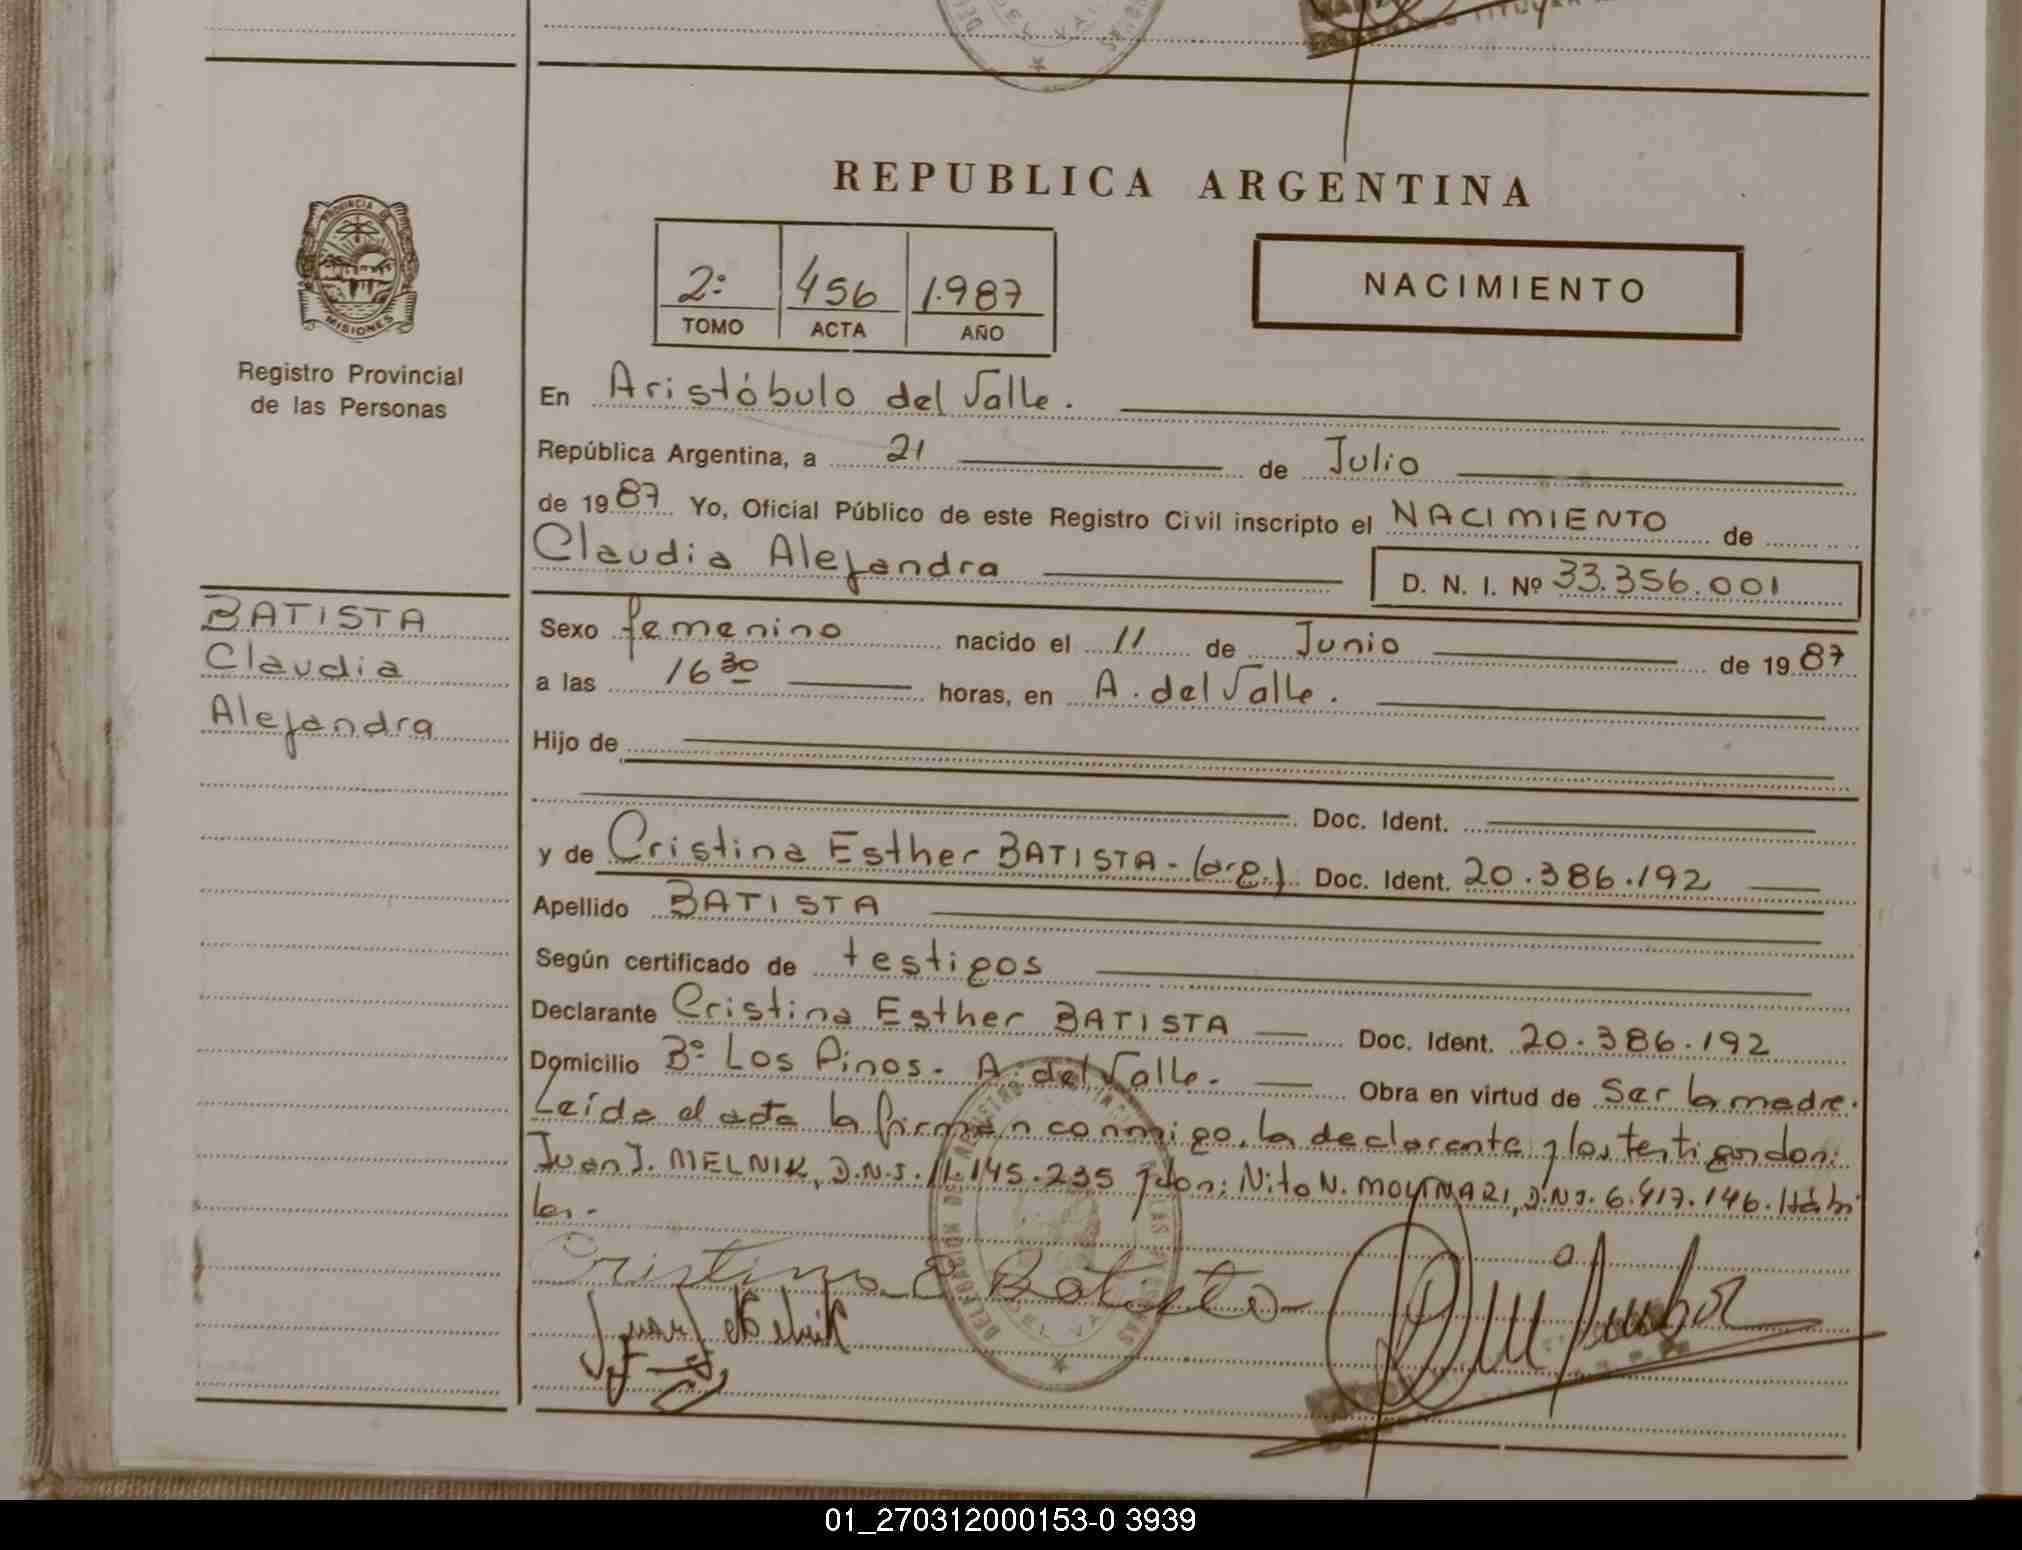 REPUBLICA ARGENTINA
PROVINCIA DE
MISIONES
Registro Provincial
de las Personas
2º 456 1.987
TOMO ACTA AÑO
NACIMIENTO
En Aristóbulo del Valle.
República Argentina, a 21 de Julio
de 1987 Yo, Oficial Público de este Registro Civil inscripto el NACIMIENTO de
Claudia Alejandra D. N. I. Nº 33.356.001
BATISTA
Claudia
Alejandra
Sexo femenino nacido el 11 de Junio de 1987
a las 16 30 horas, en A. del Valle.
Hijo de
Doc. Ident.
y de Cristina Esther BATISTA - (arg.) Doc. Ident. 20.386.192
Apellido BATISTA
Según certificado de testigos
Declarante Cristina Esther BATISTA Doc. Ident. 20.386.192
Domicilio Bº Los Pinos. A. del Valle. Obra en virtud de ser la madre.
Leída el acta la firman conmigo, la declarante y los testigos don:
Juan J. MELNIK, D.N.I. 11.145.235 y don: Nito N. MOLINARI, D.N.I. 6.417.146. Hábi
les.-
Cristina E Batista
Juan J Melnik
01_270312000153-0 3939